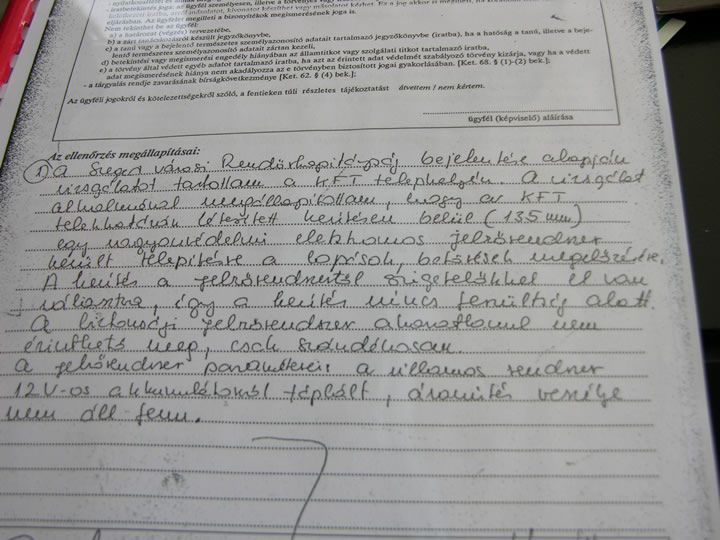 Nem tekinthet be az ügyfél:
a) a határozat (végzés) tervezetébe,
b) a zárt tanácskozásról készült jegyzőkönyvbe,
c) a tanú vagy a bejelentő természetes személyazonosító adatait tartalmazó jegyzőkönyvbe (iratba), ha a hatóság a tanú, illetve a beje-
lentő természetes személyazonosító adatait zártan kezeli,
d) betekintési vagy megismerési engedély hiányában az államtitkot vagy szolgálati titkot tartalmazó iratba,
e) a törvény által védett egyéb adatot tartalmazó iratba, ha azt az érintett adat védelmét szabályozó törvény kizárja, vagy ha a védett
adat megismerésének hiánya nem akadályozza az e törvényben biztosított jogai gyakorlásában. [Ket. 68. § (1)-(2) bek.];
- a tárgyalás rendje zavarásának bírságkövetkezménye [Ket. 62. § (4) bek.];
Az ügyféli jogokról és kötelezettségekről szóló, a fentieken túli részletes tájékoztatást átvettem / nem kértem.
ügyfél (képviselő) aláírása
Az ellenőrzés megállapításai:
1) A Szeged városi Rendőrkapitányság bejelentése alapján
vizsgálatot tartottam a KFT telephelyén. A vizsgálat
alkalmával megállapítottam, hogy az KFT
létesített kerítésen belül (135 mm)
egy vagyonvédelmi elektromos jelzőrendszer
került telepítésre a lopások, betörések megelőzésére.
A kerítés a jelzőrendszertől szigetelőkkel el van
választva, így a kerítés nincs feszültség alatt.
A biztonsági jelzőrendszer akaratlanul nem
érinthető meg, csak szándékosan.
A jelzőrendszer paraméterei: a villamos rendszer
12V-os akkumulátorról táplált, áramütés veszélye
nem áll fenn.